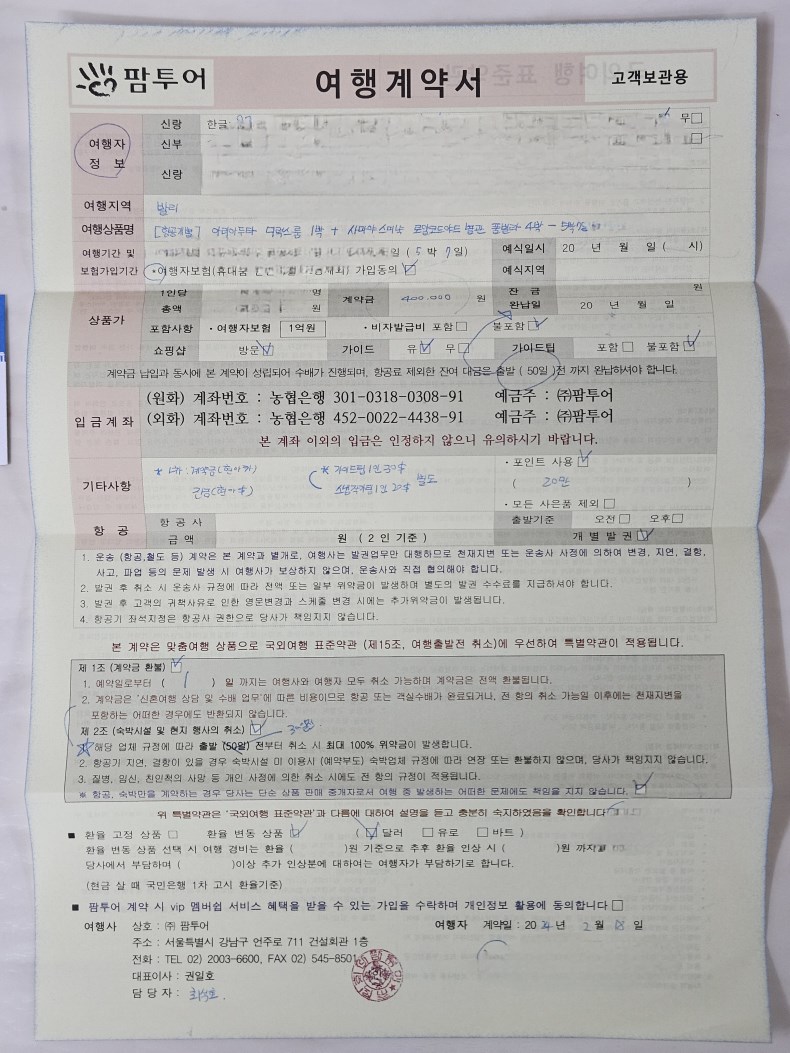 팜투어
여행계약서
고객보관용
여행자
정 보
신랑 한글:
무□
신부
신랑
여행지역 발리
여행상품명 [항공개별] 1박 + 사마야 스미냑 로얄코트야드 풀빌라 4박 - 5박7일
여행기간 및
보험가입기간
일 (5 박 7 일)
예식일시 20 년 월 일 ( 시)
• 여행자보험(휴대품 제외) 가입동의 ☑
예식지역
상품가
1인당 명
총액 원
계약금 400.000 원
잔 금 원
완납일 20 년 월 일
포함사항 • 여행자보험 1억원 • 비자발급비 포함□ 불포함☑
쇼핑샵 방문☑ 가이드 유☑ 무□ 가이드팁 포함□ 불포함☑
계약금 납입과 동시에 본 계약이 성립되어 수배가 진행되며, 항공료 제외한 잔여 대금은 출발 ( 50일 )전 까지 완납하셔야 합니다.
입금계좌
(원화) 계좌번호 : 농협은행 301-0318-0308-91 예금주 : ㈜팜투어
(외화) 계좌번호 : 농협은행 452-0022-4438-91 예금주 : ㈜팜투어
본 계좌 이외의 입금은 인정하지 않으니 유의하시기 바랍니다.
기타사항
계약금(원화)
* 가이드팁 1인 30$
1인 20$ 별도
• 포인트 사용☑
( 20만 )
• 모든 사은품 제외□
항 공
항 공 사
금 액 원 ( 2 인 기준 )
출발기준 오전□ 오후□
개 별 발 권 ☑
1. 운송 (항공,철도 등) 계약은 본 계약과 별개로, 여행사는 발권업무만 대행하므로 천재지변 또는 운송사 사정에 의하여 변경, 지연, 결항,
사고, 파업 등의 문제 발생 시 여행사가 보상하지 않으며, 운송사와 직접 협의해야 합니다.
2. 발권 후 취소 시 운송사 규정에 따라 전액 또는 일부 위약금이 발생하며 별도의 발권 수수료를 지급하셔야 합니다.
3. 발권 후 고객의 귀책사유로 인한 영문변경과 스케줄 변경 시에는 추가위약금이 발생됩니다.
4. 항공기 좌석지정은 항공사 권한으로 당사가 책임지지 않습니다.
본 계약은 맞춤여행 상품으로 국외여행 표준약관 (제15조, 여행출발전 취소)에 우선하여 특별약관이 적용됩니다.
제 1조 (계약금 환불) ☑
1. 예약일로부터 ( 1 ) 일 까지는 여행사와 여행자 모두 취소 가능하며 계약금은 전액 환불됩니다.
2. 계약금은 '신혼여행 상담 및 수배 업무'에 따른 비용이므로 항공 또는 객실수배가 완료되거나, 전 항의 취소 가능일 이후에는 천재지변을
포함하는 어떠한 경우에도 반환되지 않습니다.
제 2조 (숙박시설 및 현지 행사의 취소) ☑ 30일
해당 업체 규정에 따라 출발 (50일) 전부터 취소 시 최대 100% 위약금이 발생합니다.
2. 항공기 지연, 결항이 있을 경우 숙박시설 미 이용시 (예약부도) 숙박업체 규정에 따라 연장 또는 환불하지 않으며, 당사가 책임지지 않습니다.
3. 질병, 임신, 친인척의 사망 등 개인 사정에 의한 취소 시에도 전 항의 규정이 적용됩니다.
* 항공, 숙박만을 계약하는 경우 당사는 단순 상품 판매 중개자로서 여행 중 발생하는 어떠한 문제에도 책임을 지지 않습니다. ☑
위 특별약관은 '국외여행 표준약관'과 다름에 대하여 설명을 듣고 충분히 숙지하였음을 확인합니다
■ 환율 고정 상품 □ 환율 변동 상품 ☑ ( ☑ 달러 □ 유로 □ 바트 )
환율 변동 상품 선택 시 여행 경비는 환율 ( )원 기준으로 추후 환율 인상 시 ( )원 까지를
당사에서 부담하며 ( )이상 추가 인상분에 대하여는 여행자가 부담하기로 합니다.
(현금 살 때 국민은행 1차 고시 환율기준)
■ 팜투어 계약 시 vip 멤버쉽 서비스 혜택을 받을 수 있는 가입을 수락하며 개인정보 활용에 동의합니다 □
여행사 상호 : ㈜ 팜투어
여행자 계약일 : 20 24 년 2 월 18 일
주소 : 서울특별시 강남구 언주로 711 건설회관 1층
전화 : TEL 02) 2003-6600, FAX 02) 545-8501
대표이사 : 권일호
담 당 자 :